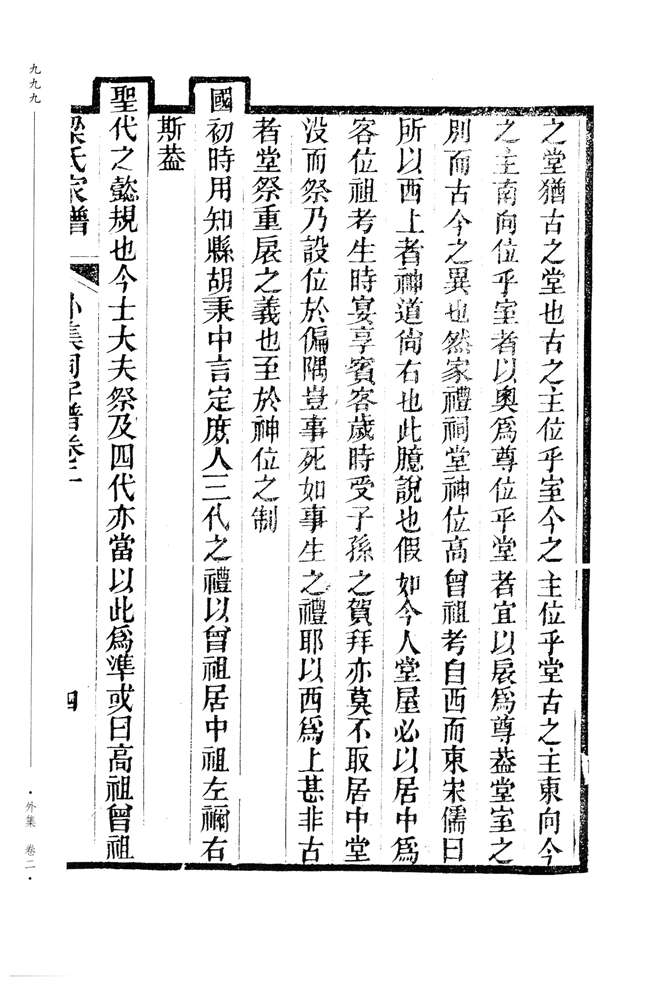 之堂猶古之堂也古之主位乎室今之主位乎堂古之主東向今
之主南向位乎室者以奧爲尊位乎堂者宜以扆爲尊葢堂室之
別而古今之異也然家禮祠堂神位高曾祖考自西而東宋儒曰
所以西上者神道尚右也此臆說也假如今人堂屋必以居中爲
客位祖考生時宴享賓客歲時受子孫之賀拜亦莫不取居中堂
没而祭乃設位於偏隅豈事死如事生之禮耶以西爲上甚非古
者堂祭重扆之義也至於神位之制
國初時用知縣胡秉中言定庶人三代之禮以曾祖居中祖左禰右
斯葢
聖代之懿規也今士大夫祭及四代亦當以此爲準或曰高祖曾祖
梁氏家譜 外集祠宇譜卷二 四
九九九
·外集 卷二·